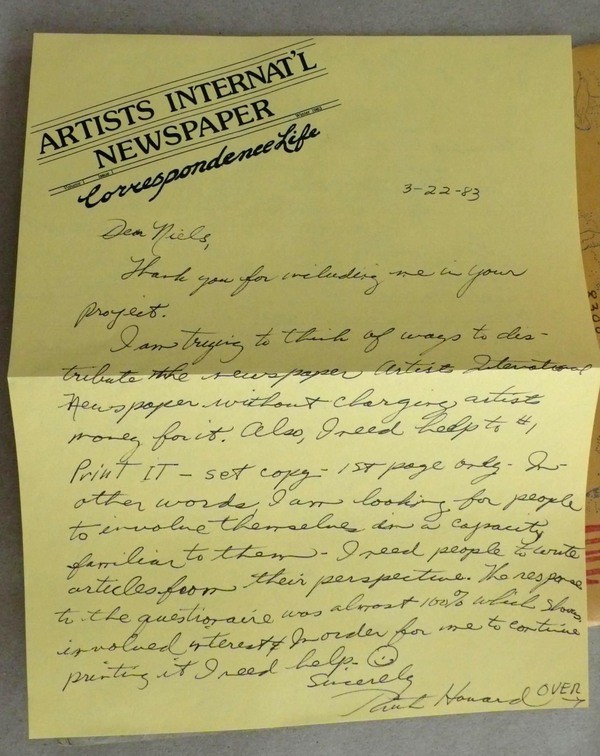 ARTISTS INTERNAT'L
NEWSPAPER
Correspondence Life
3-22-83
Dear Niels,
Thank you for including me in your
project.
I am trying to think of ways to dis-
tribute the newspaper Artists Interational
Newspaper without charging artists
money for it. Also, I need help to #1
Print IT - set copy - 1st page only - In
other words, I am looking for people
to involve themselves in a capacity
familiar to them - I need people to write
articles from their perspective. The response
to the questionaire was almost 100% which shows
involved interest & In order for me to continue
printing it I need help - ☺
Sincerely
Howard OVER →